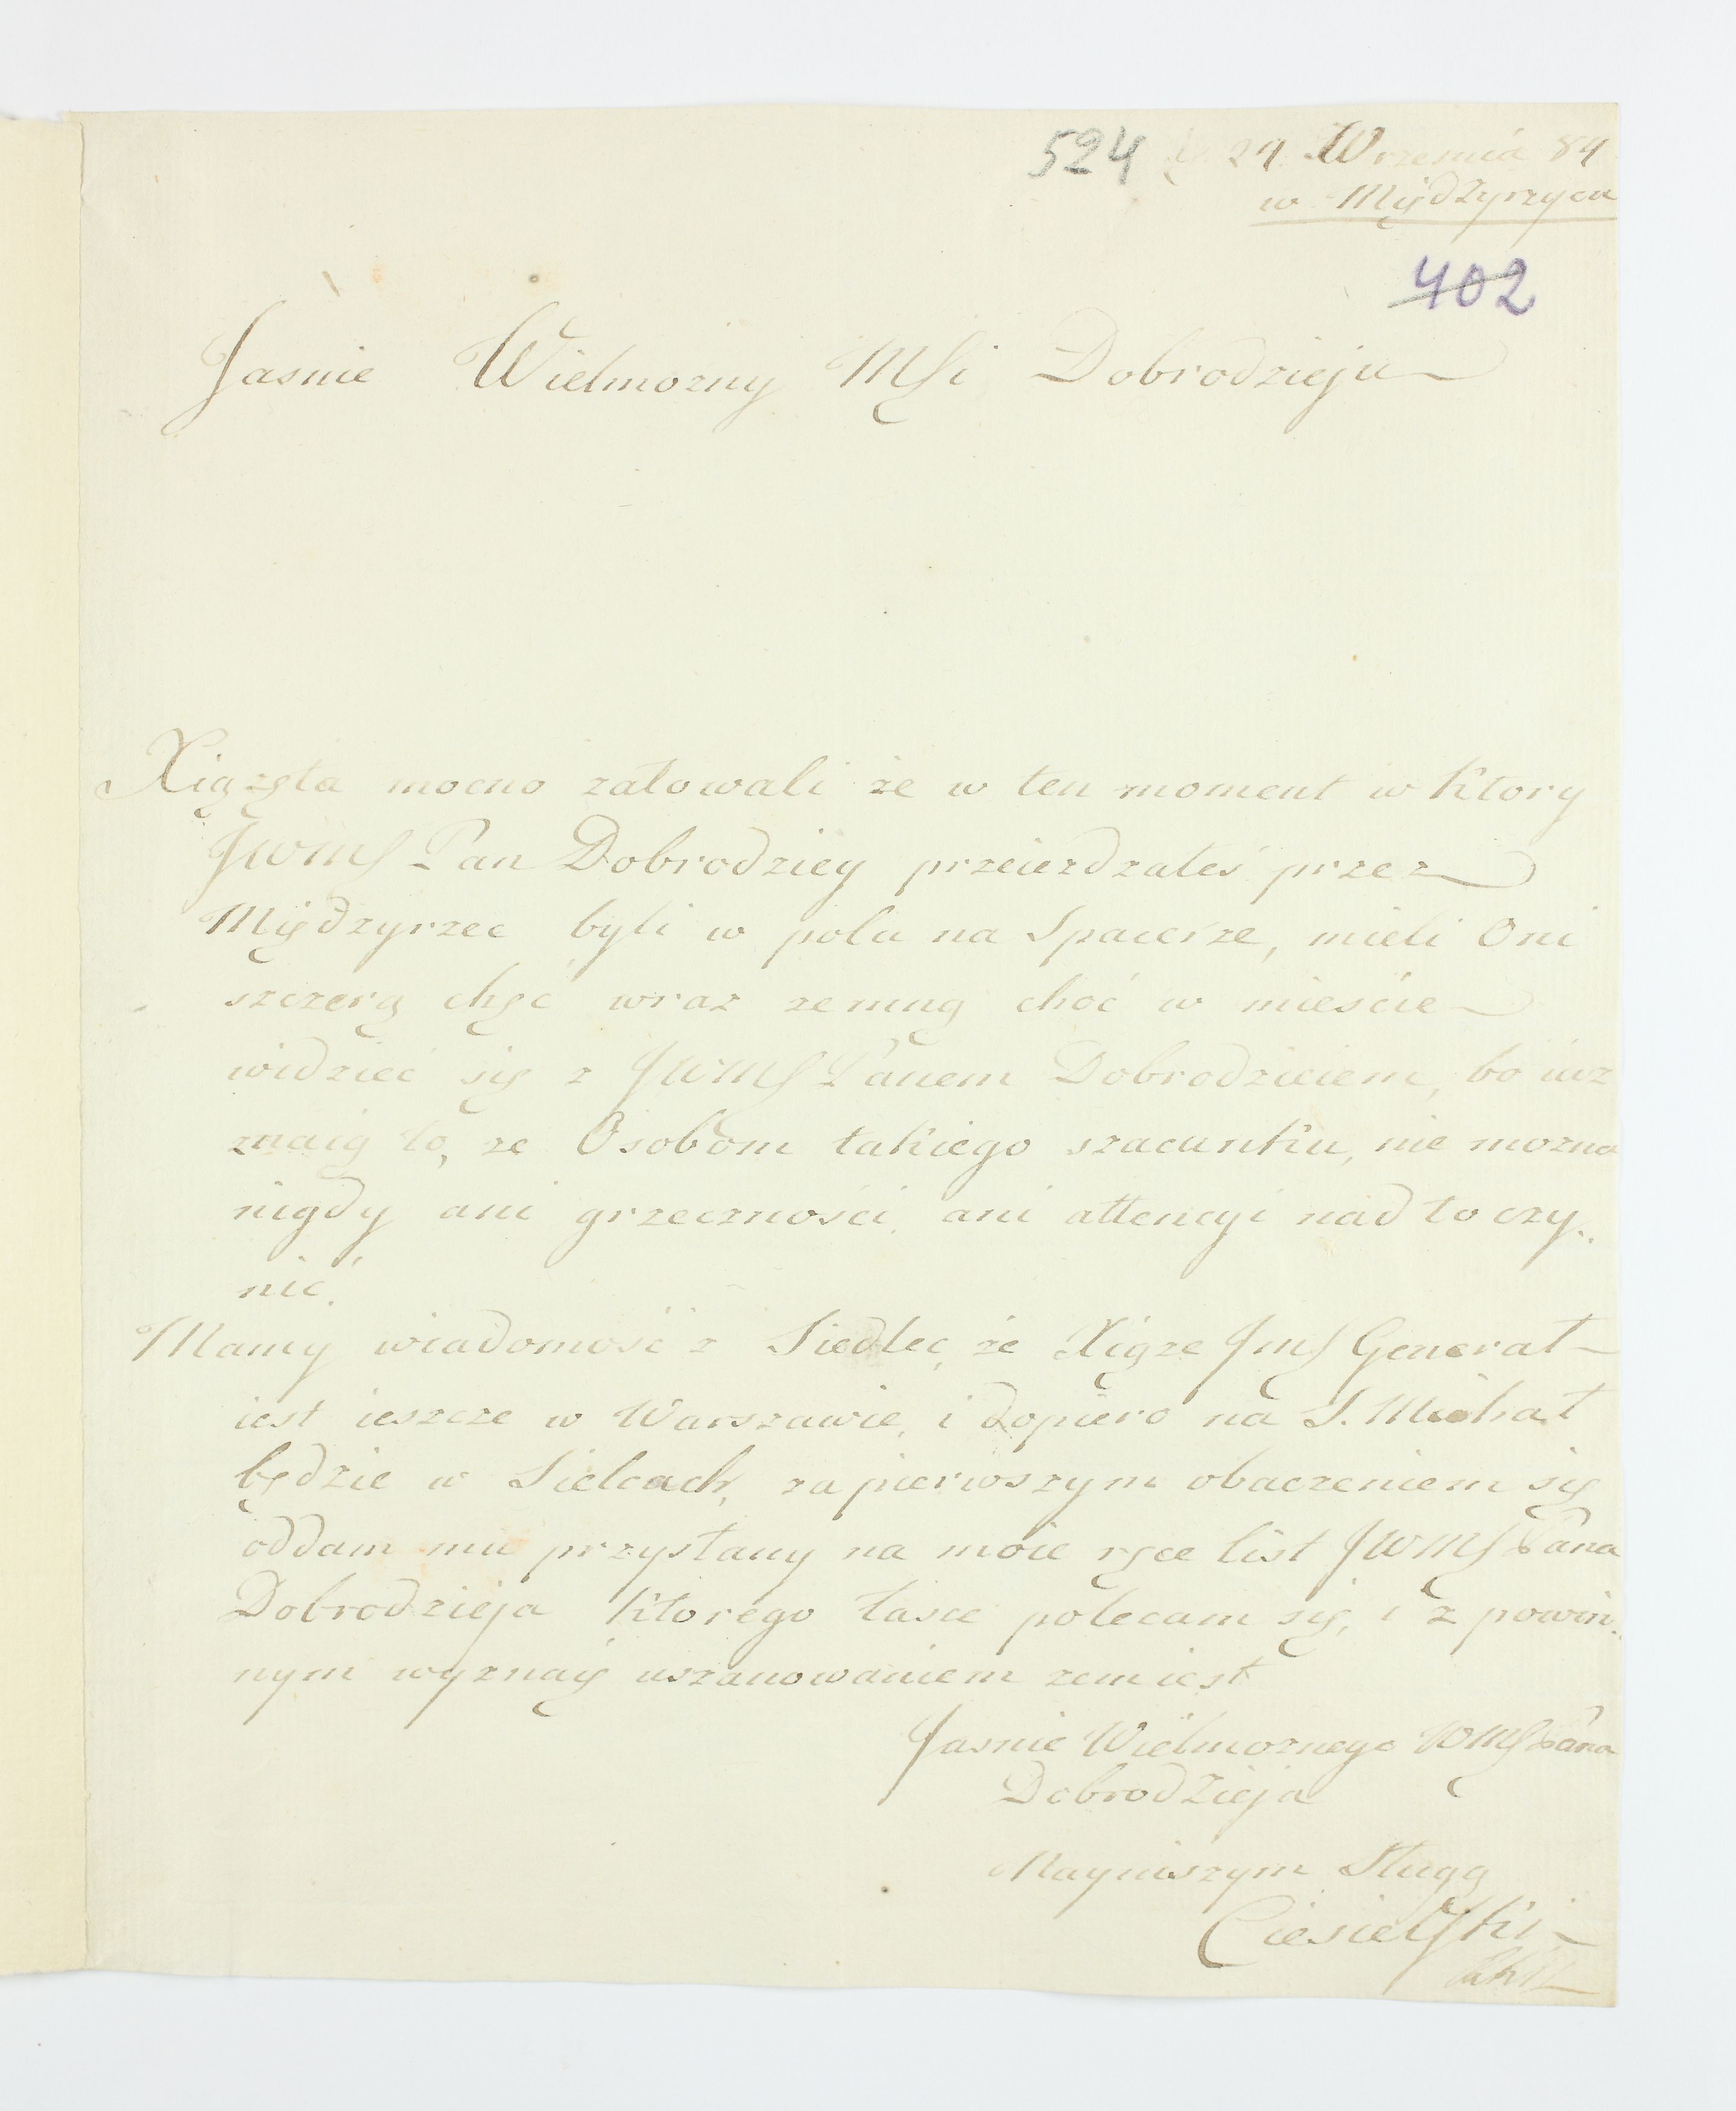 524 24 Wrzesnia 84
w Międzyrzycu
402
Jasnie Wielmozny MSi Dobrodzieju
Xiązęta mocno załowali że w ten moment w ktory
JWMS Pan Dobrodziey przeiezdzałeś przez
Międzyrzec byli w polu na Spacerze, mieli Oni
szczerą chęć wraz zemną choć w mieście
widzieć się z JWMS Panem Dobrodzieiem, bo iuz
znaią to, ze Osobom takiego szacunku, nie mozna
nigdy ani grzeczności, ani attencyi nad to czy..
nić.
Mamy wiadomość z Siedlec, że Xiąze JmS Generał
iest ieszcze w Warszawie, i dopiero na S. Michał
będzie w Sielcach, za pierwszym obaczeniem się
oddam mu przysłany na moie ręce list JWMS Pana
Dobrodzieja ktorego łasce polecam się, i z powin..
nym wyznaię uszanowaniem zem iest
Jasnie Wielmoznego WMS Pana
Dobrodzieja
Nayniszym Sługą
Ciesielski